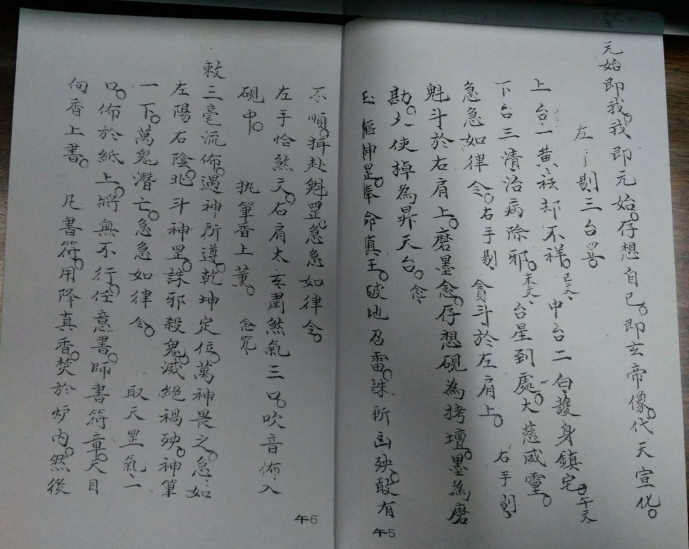 元始即我。我即元始。存想自己。即玄帝像。代天宣化。
左手剔三台罡。
上台一黃。祛却不祥。 中台二白。護身鎮宅。
下台三清。治病除邪。台星到處。大慈威靈。
急急如律令。右手剔 貪斗於左肩上。 右手剔
魁斗於右肩上。磨墨念。存想硯為拷壇。墨為磨
勘。火使掉為昇天台。念。
玉樞神罡。奉命真王。破地召雷。誅斬凶殃。敢有
午5
不順。押赴魁罡。急急如律令。
左手恰然天。右肩太玄肅然氣三口。吹音佈入
硯中。 执筆香上薰。 念咒
敕三毫流佈。遇神所遵。乾坤定位。萬神畏之。急如
左陽右陰。北斗神罡。誅邪殺鬼。滅絕禍殃。神筆
一下。萬鬼潛亡。急急如律令。 取天罡氣一
口。佈於紙上。將無不行。任意書。師書符章。天目
向香上書。 凡書符。用降真香。焚於炉內。然後
午6